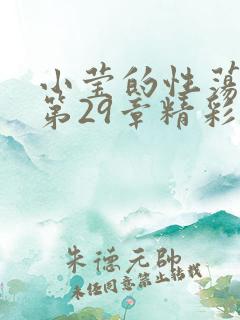 小莹的性荡
第29章精彩
朱德元帅
未经同意禁止转载